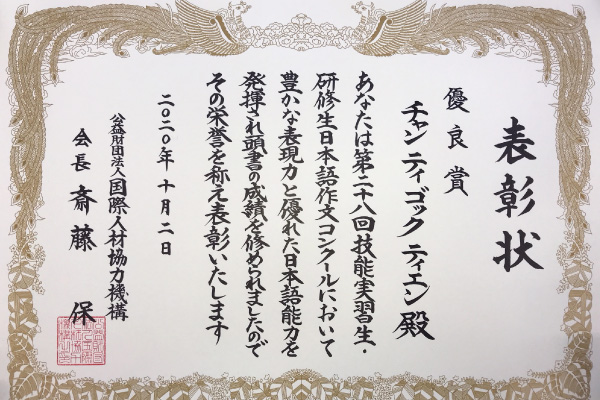 表彰状
優良賞
チャン ティゴック ティエン 殿
あなたは第二十八回技能実習生・
研修生日本語作文コンクールにおいて
豊かな表現力と優れた日本語能力を
発揮され頭書の成績を修められましたので
その栄誉を称え表彰いたします
二〇二〇年 十月 二日
公益財団法人 国際人材協力機構
会長 斎藤 保